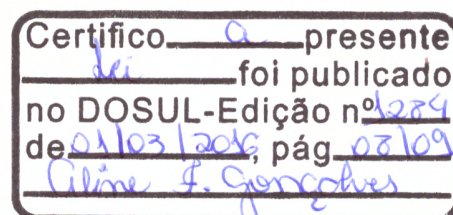 Certifico a presente
Lei foi publicado
no DOSUL-Edição nº 1284
de 01/03/2016, pág 08/09
Aline F. Gonçalves